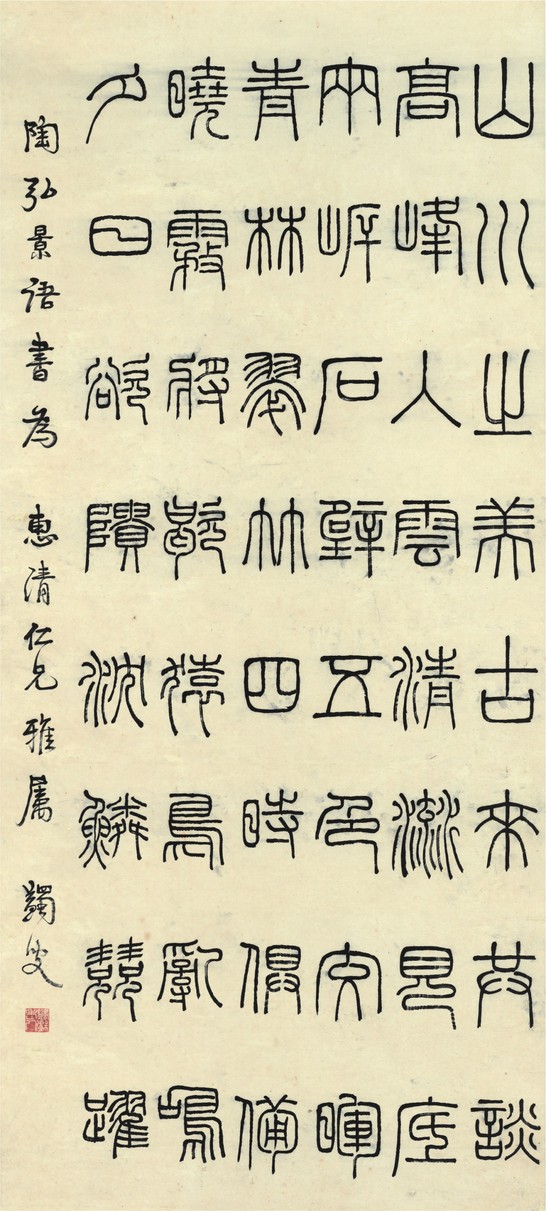 山川之美古來共談
高峰入雲清流見底
兩岸石壁五色交暉
青林翠竹四時俱備
曉霧將歇猿鳥亂鳴
夕日欲隤沈鱗競躍
陶弘景語書為 惠清仁兄雅属 蠲叟